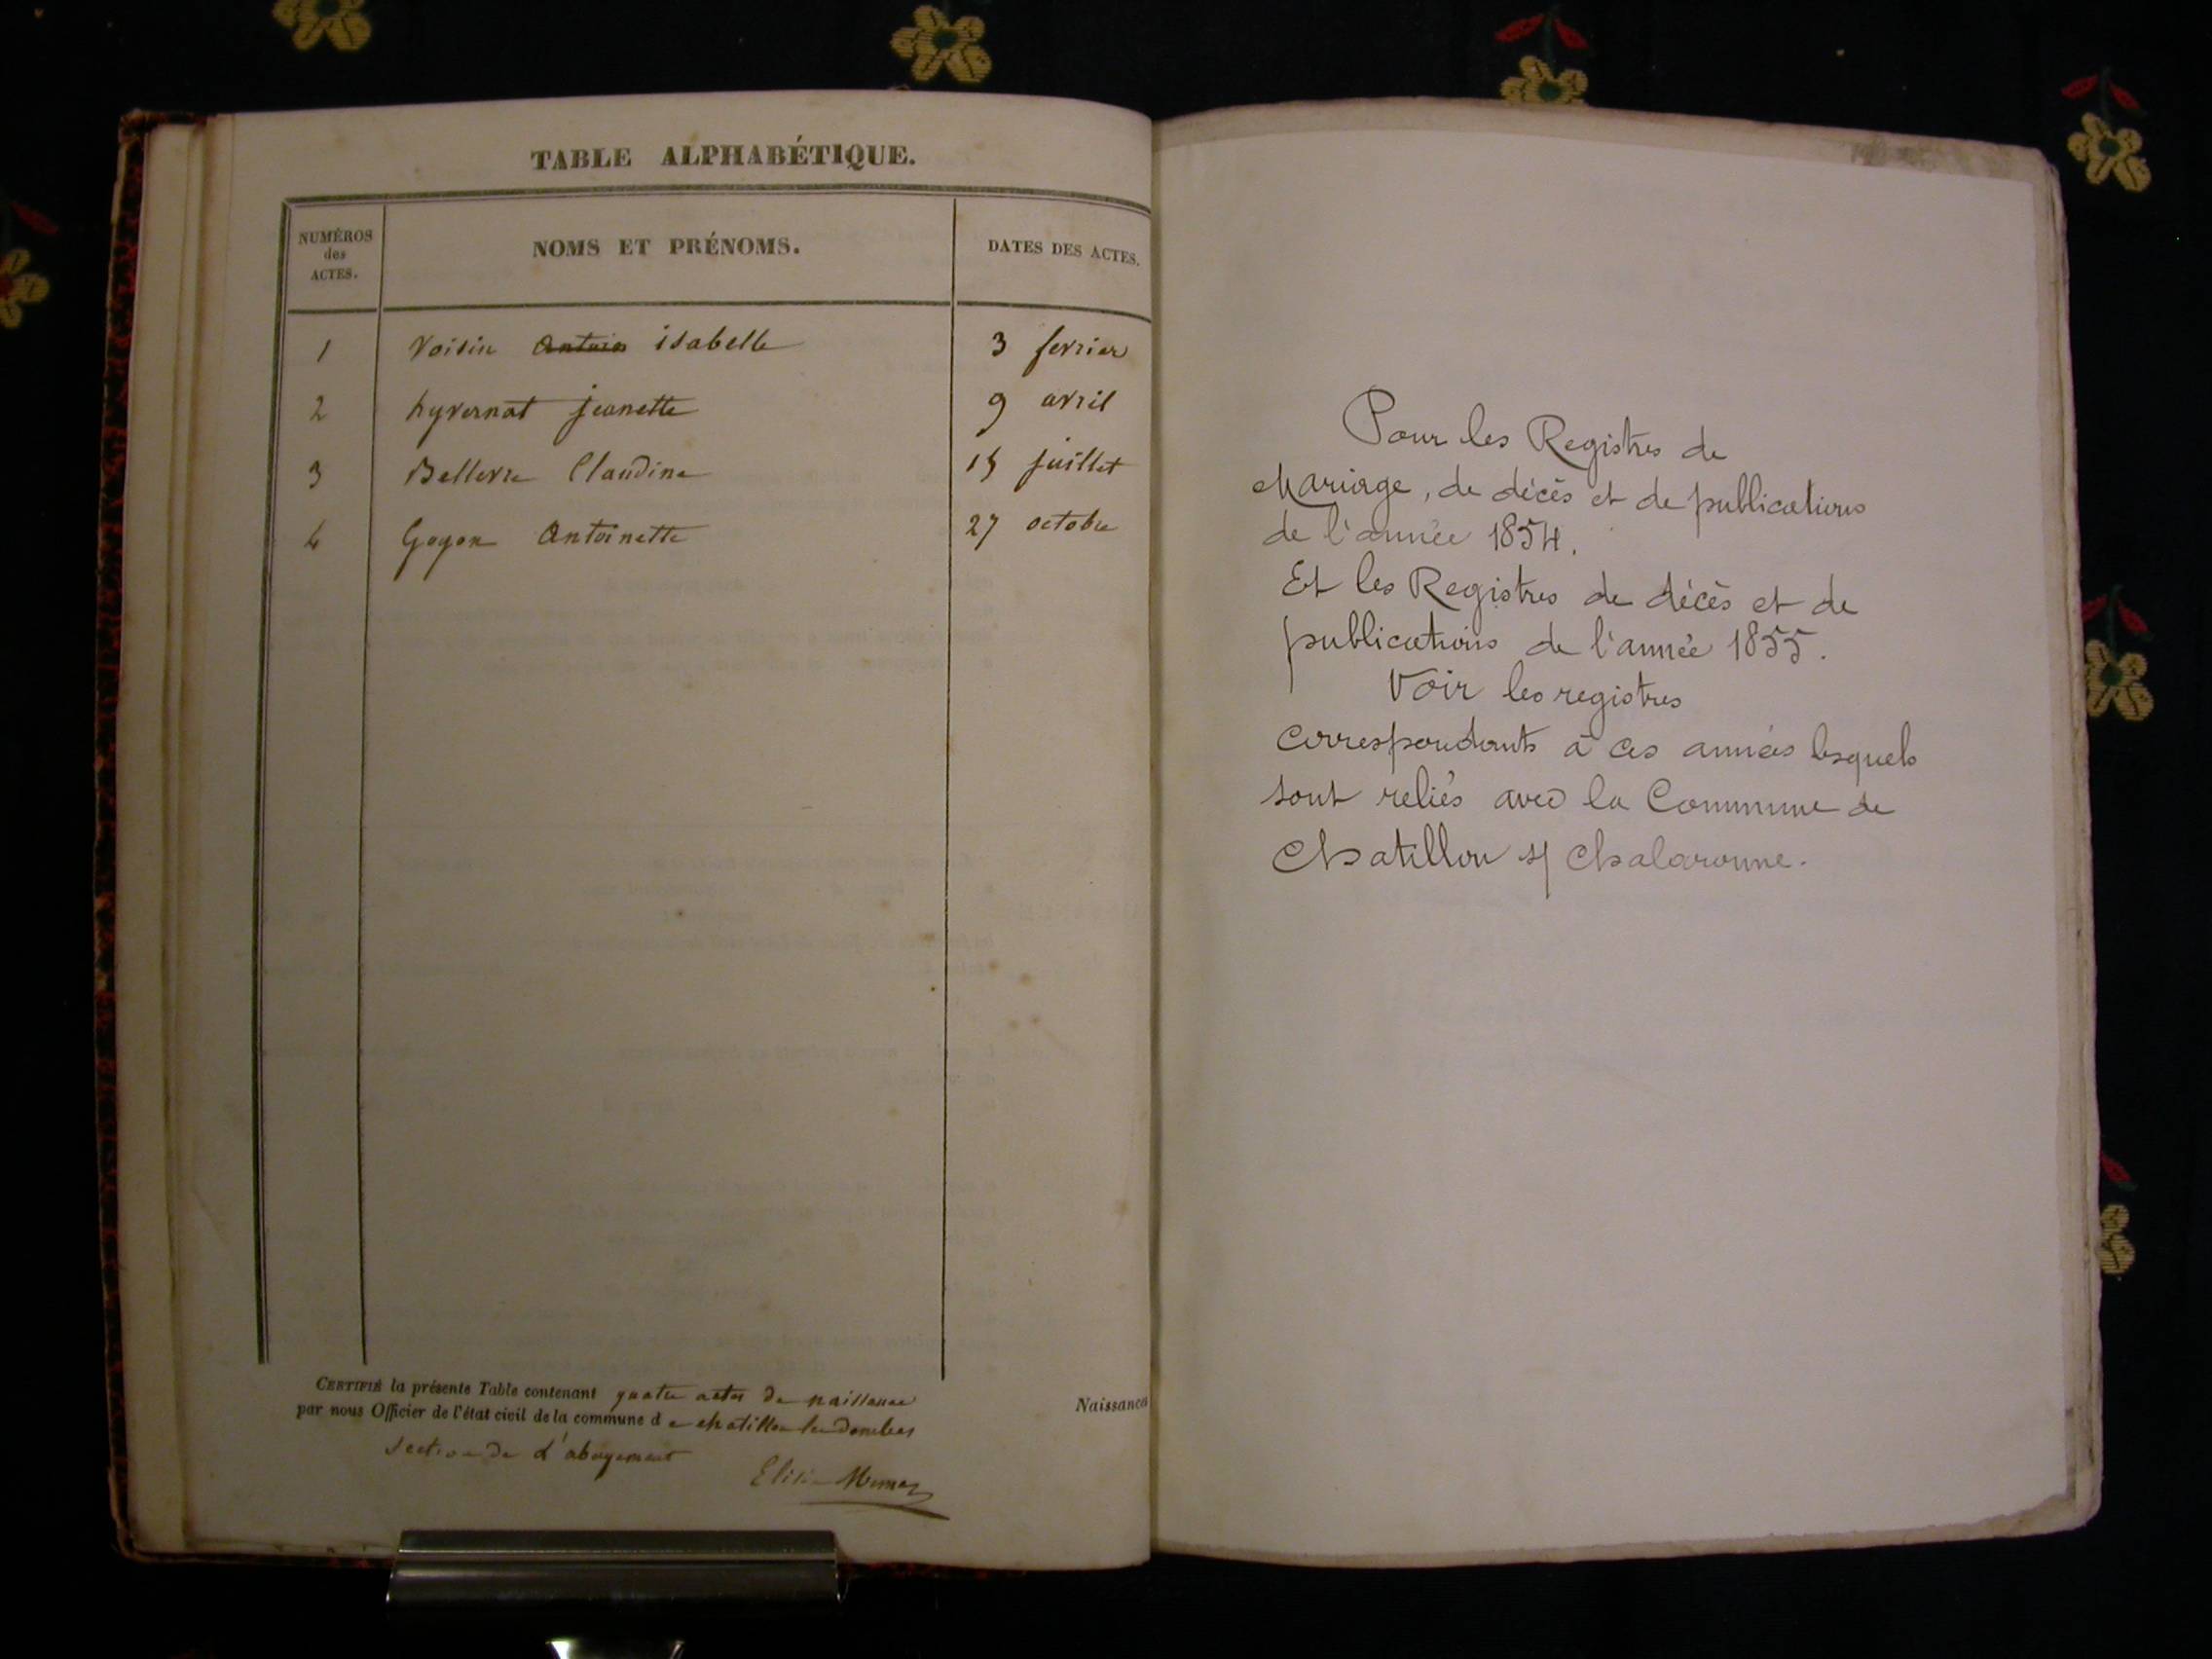 TABLE ALPHABÉTIQUE.
NUMÉROS
des
ACTES.
NOMS ET PRÉNOMS.
DATES DES ACTES.
1 Voisin isabelle 3 fevrier
2 hyvernat jeanette 9 avril
3 Claudine 15 juillet
4 Goyon Antoinette 27 octobre
CERTIFIÉ la présente Table contenant quatre actes de naissance
par nous Officier de l'état civil de la commune de chatillon les dombes
section de l'abergement
Naissances
Pour les Registres de
Mariage, de décès et de publications
de l'année 1854.
Et les Registres de décès et de
publications de l'année 1855.
Voir les registres
correspondants à ces années lesquels
sont reliés avec la Commune de
Chatillon s/ Chalaronne.